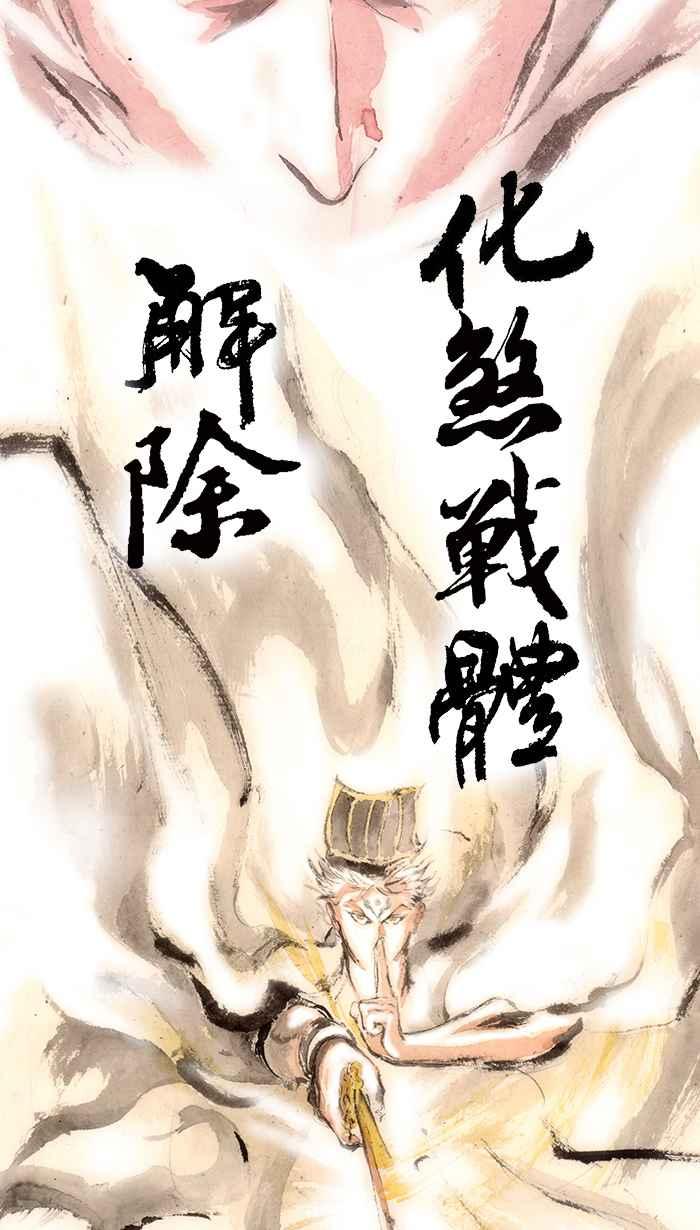 化煞戰體
解除